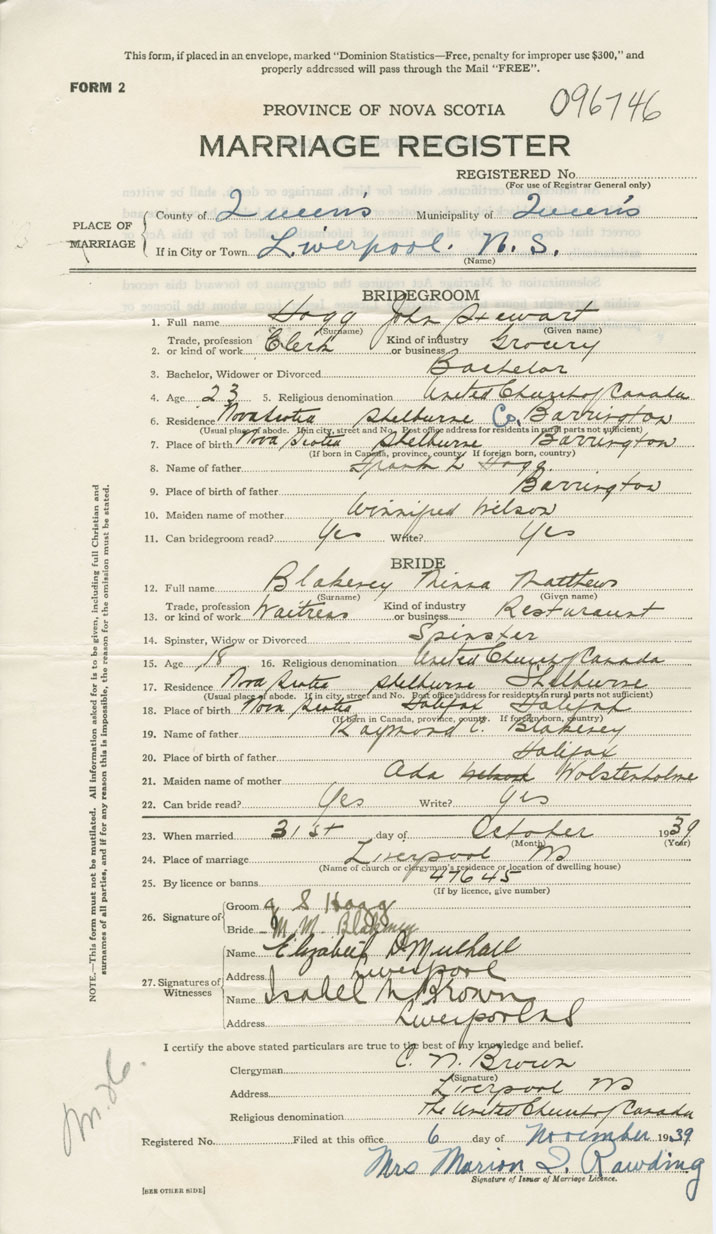 This form, if placed in an envelope, marked "Dominion Statistics—Free, penalty for improper use $300," and
properly addressed will pass through the Mail "FREE".
FORM 2
096746
PROVINCE OF NOVA SCOTIA
MARRIAGE REGISTER
REGISTERED No.
(For use of Registrar General only)
PLACE OF MARRIAGE
County of Queen's Municipality of Queen's
If in City or Town Liverpool. N. S.
(Name)
BRIDEGROOM
1. Full name Hogg John Stewart
(Surname) (Given name)
2. Trade, profession or kind of work Clerk Kind of industry or business Grocery
3. Bachelor, Widower or Divorced Bachelor
4. Age 23 5. Religious denomination United Church of Canada
6. Residence Nova Scotia Shelburne Co. Barrington
(Usual place of abode. If in city, street and No. Post office address for residents in rural parts not sufficient)
7. Place of birth Nova Scotia Shelburne Barrington
(If born in Canada, province, county. If foreign born, country)
8. Name of father Frank L Hogg
9. Place of birth of father Barrington
10. Maiden name of mother Winnifred Wilson
11. Can bridegroom read? Yes Write? Yes
BRIDE
12. Full name Blakeney Minna Matthews
(Surname) (Given name)
13. Trade, profession or kind of work Waitress Kind of industry or business Resturaunt
14. Spinster, Widow or Divorced Spinster
15. Age 18 16. Religious denomination United Church of Canada
17. Residence Nova Scotia Shelburne Shelburne
(Usual place of abode. If in city, street and No. Post office address for residents in rural parts not sufficient)
18. Place of birth Nova Scotia Halifax Halifax
(If born in Canada, province, county. If foreign born, country)
19. Name of father Raymond C. Blakeney
20. Place of birth of father Halifax
21. Maiden name of mother Ada Wolstenholme
22. Can bride read? Yes Write? Yes
23. When married 31st day of October 1939
(Month) (Year)
24. Place of marriage Liverpool NS
(Name of church or clergyman's residence or location of dwelling house)
25. By licence or banns 47645
(If by licence, give number)
26. Signature of
Groom J S Hogg
Bride M. M. Blakeney
27. Signatures of Witnesses
Name Elizabeth D Mulhall
Address Liverpool
Name Isabel M Brown
Address Liverpool NS
I certify the above stated particulars are true to the best of my knowledge and belief.
Clergyman C. N. Brown
(Signature)
Address Liverpool NS
Religious denomination The United Church of Canada
Registered No. Filed at this office 6 day of November 1939
Mrs Marion I. Rawding
Signature of Issuer of Marriage Licence.
[SEE OTHER SIDE]
NOTE.—This form must not be mutilated. All information asked for is to be given, including full Christian and
surnames of all parties, and if for any reason this is impossible, the reason for the omission must be stated.